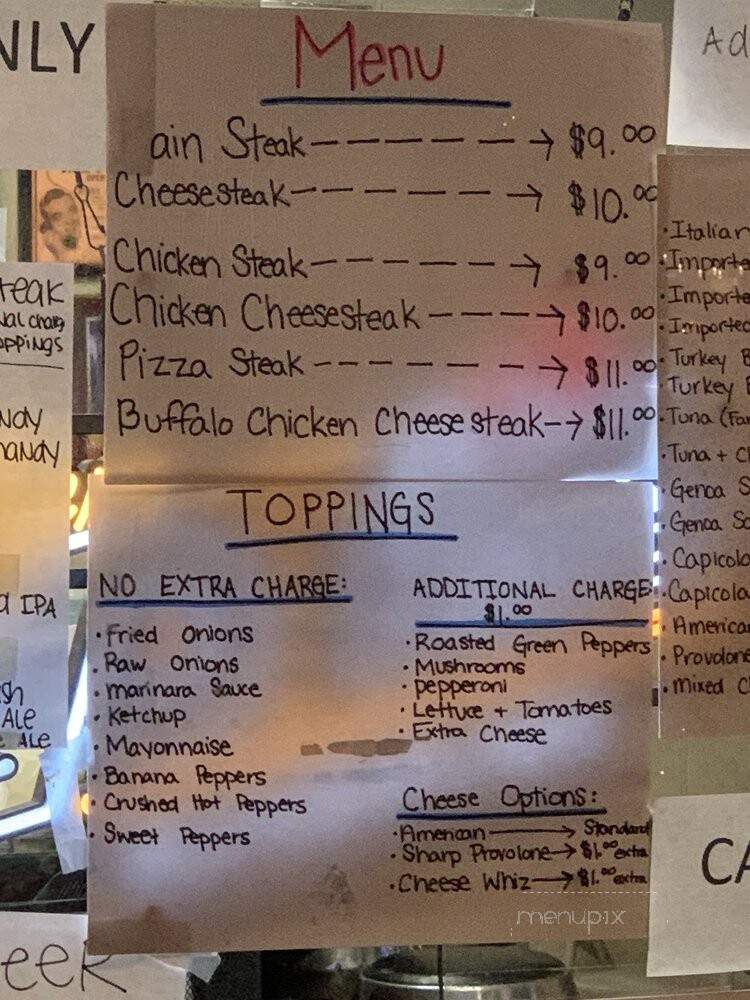 NLY
Menu
ain Steak ------→ $9.00
Cheesesteak ------→ $10.00
Chicken Steak ------→ $9.00
Chicken Cheesesteak ----→ $10.00
Pizza Steak ------→ $11.00
Buffalo Chicken Cheese steak --→ $11.00
TOPPINGS
NO EXTRA CHARGE:
• Fried Onions
• Raw Onions
• marinara Sauce
• Ketchup
• Mayonnaise
• Banana Peppers
• Crushed Hot Peppers
• Sweet Peppers
ADDITIONAL CHARGE
$1.00
• Roasted Green Peppers
• Mushrooms
• pepperoni
• Lettuce + Tomatoes
• Extra Cheese
Cheese Options:
• American → Standard
• Sharp Provolone → $1.00 extra
• Cheese Whiz → $1.00 extra
menupix
teak
oppings
IPA
ALE
ALE
eek
Ad
• Italian
• Importe
• Importe
• Imported
• Turkey B
• Turkey B
• Tuna (Fa
• Tuna + Ch
• Genoa S
• Genoa Sa
• Capicola
• Capicola
• America
• Provolone
• Mixed C
CA